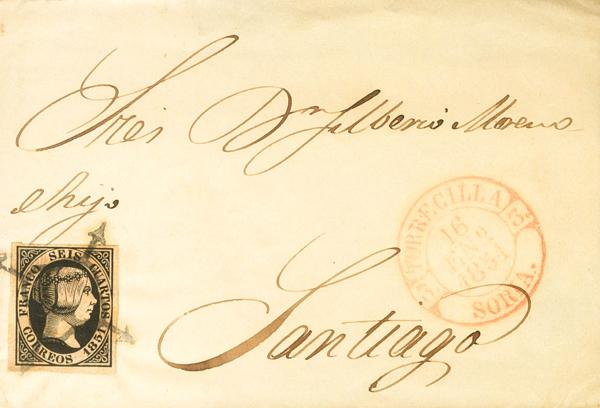 Sres Dn Gilberto Moreno
e hijo
Santiago
FRANCO SEIS CUARTOS
CORREOS 1851
TORRECILLA
16
1851
SORIA.